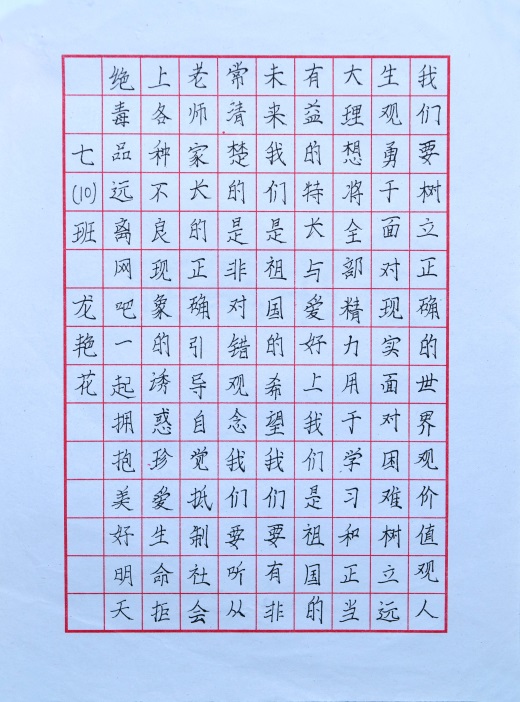 我们要树立正确的世界观价值观人
生观勇于面对现实面对困难树立远
大理想将全部精力用于学习和正当
有益的特长与爱好上我们是祖国的
未来我们是祖国的希望我们要有非
常清楚的是非对错观念我们要听从
老师家长的正确引导自觉抵制社会
上各种不良现象的诱惑珍爱生命拒
绝毒品远离网吧一起拥抱美好明天
七(10)班 龙艳花